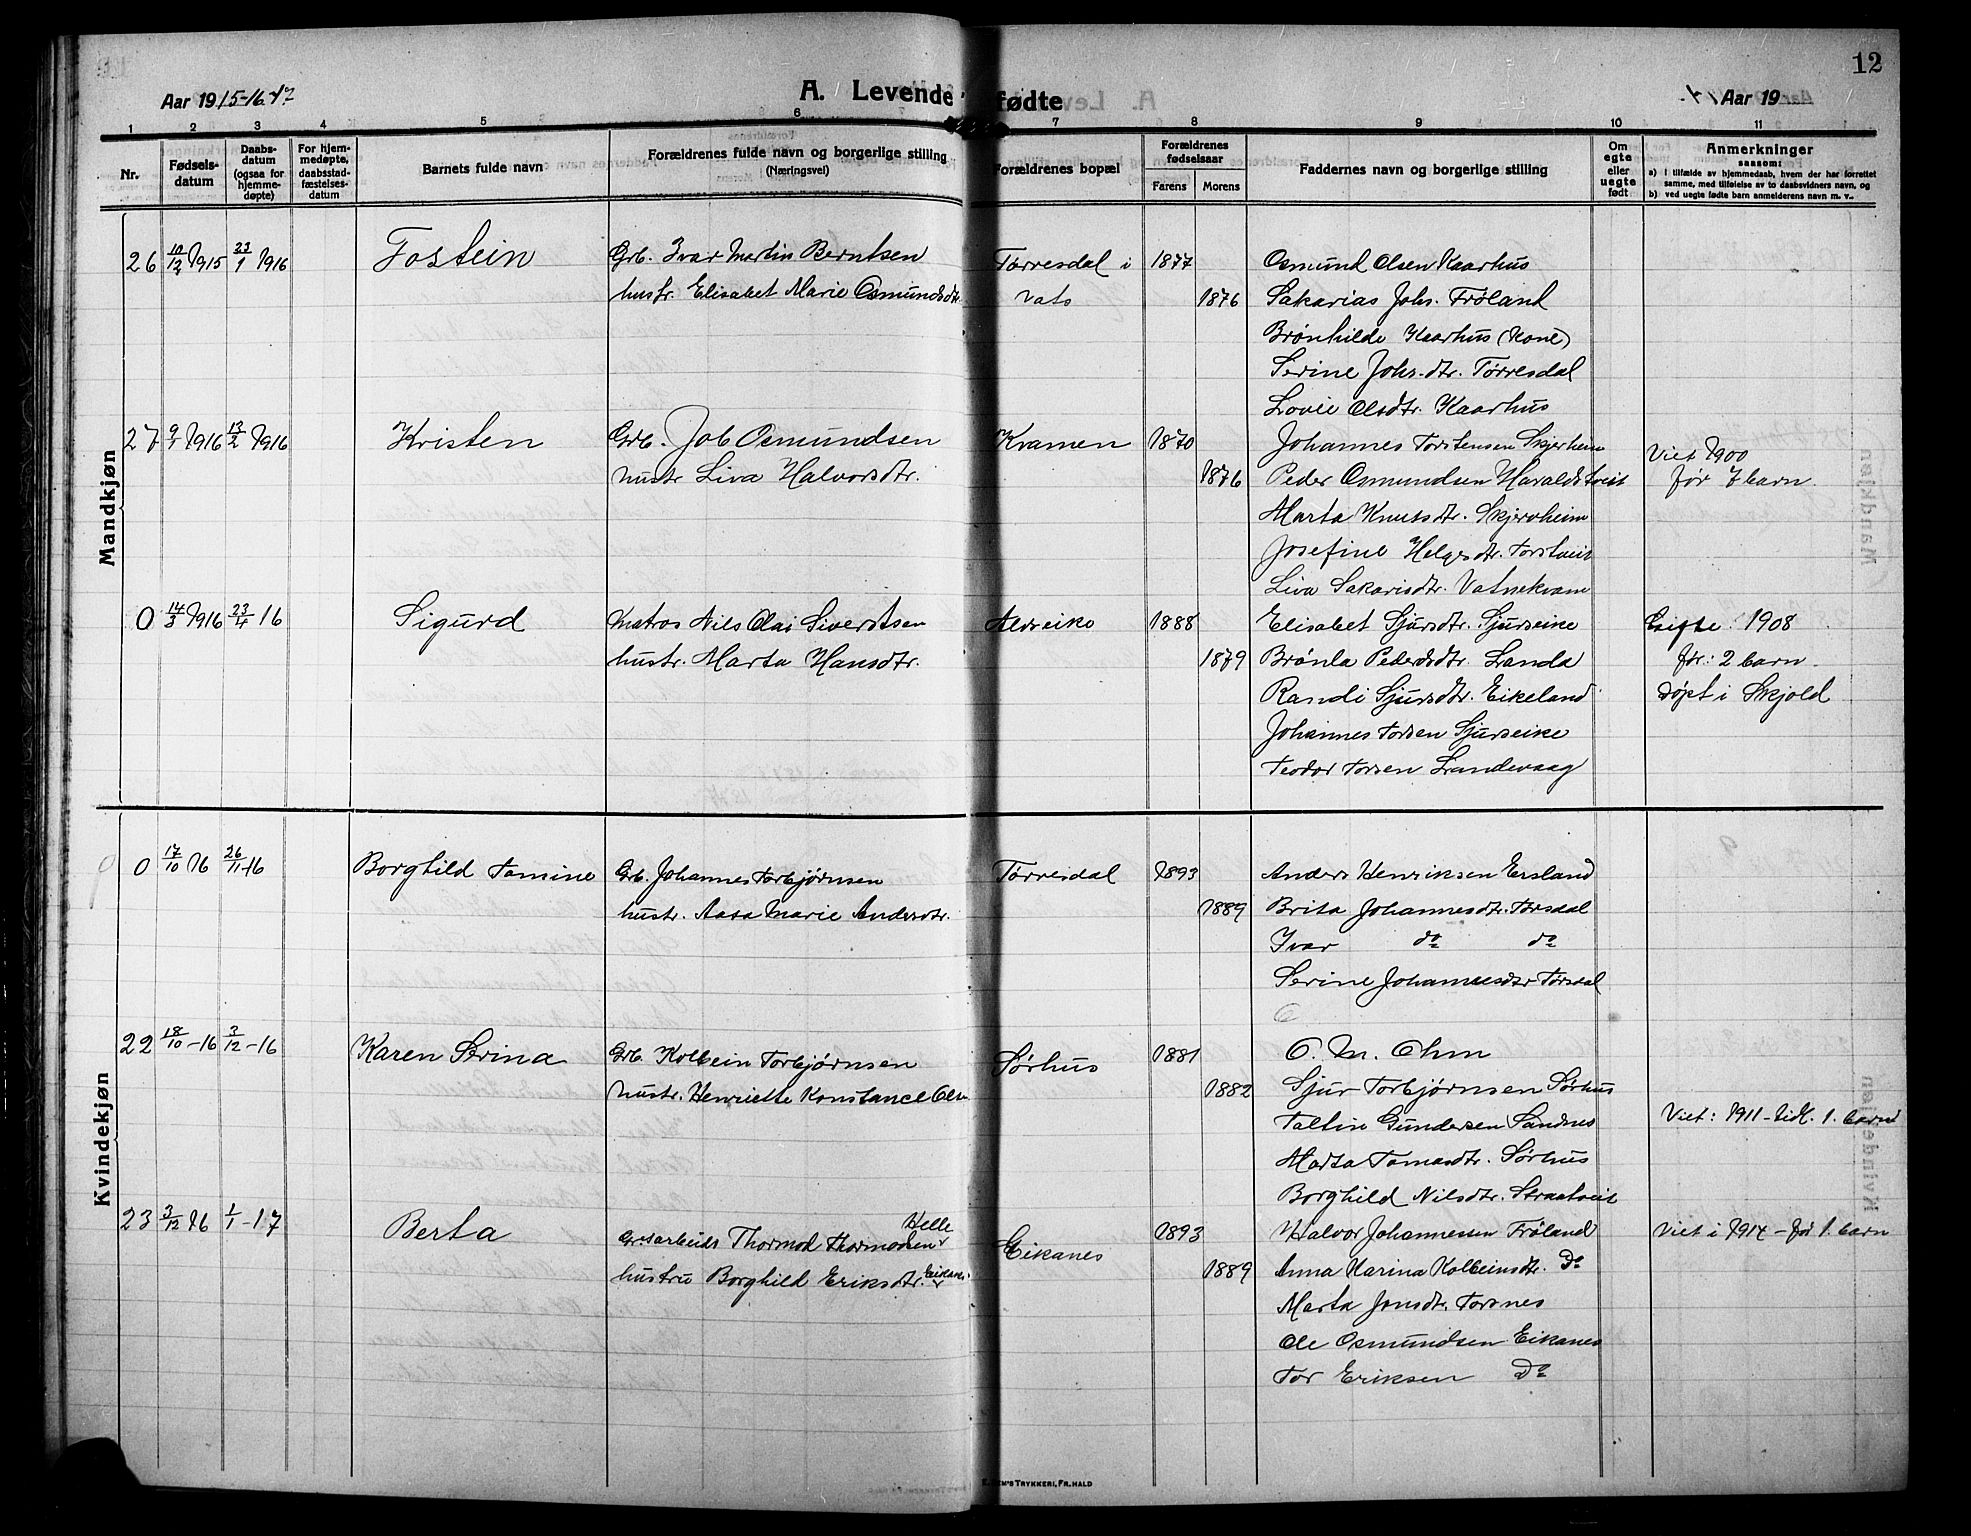 12
Aar 1915-16-17
A. Levende fødte
Aar 19
1 2 3 4 5 6 7 8 9 10 11
Nr.
Fødsels-
datum
Daabs-
datum
(ogsaa for
hjemme-
døpte)
For hjem-
medøpte,
daabsstad-
fæstelses-
datum
Barnets fulde navn
Forældrenes fulde navn og borgerlige stilling
(Næringsvei)
Forældrenes bopæl
Forældrenes
fødselsaar
Farens Morens
Faddernes navn og borgerlige stilling
Om
egte
eller
uegte
født
Anmerkninger
saasom:
a) i tilfælde av hjemmedaab, hvem der har forrettet
samme, med tilføielse av to daabsvidners navn, og
b) ved uegte fødte barn anmelderens navn m. v.
Mandkjøn
26 10/12 1915 23/1 1916 Tostein Grb. Ivar Martin Berntsen Tørresdal i 1877 Osmund Olsen Kaarhus
hustr. Elisabet Marie Osmundsdtr. Vats 1876 Sakarias Johs. Frøland
Brønhilde Kaarhus (Kone)
Serine Johs.dtr. Tørresdal
Lovie Olsdtr. Kaarhus
27 9/1 1916 13/2 1916 Kristen Grb. Job Osmundsen Kvamen 1870 Johannes Torstensen Skjerheim
Viet 1900
hustr Liva Halvorsdtr. 1876 Peder Osmundsen Haraldstveit før 7 barn.
Marta Knutsdtr. Skjerheim
Josefine Helgesdtr. Torstveit
Liva Sakarisdtr. Vatnekvam
0 14/3 1916 23/4 16 Sigurd Matros Nils Olai Sivertsen Alvseike 1888 Elisabet Sjursdtr. Sjurseike Gifte: 1908
hustr. Marta Hansdtr. 1879 Brønla Pedersdtr. Landa før: 2 barn.
Randi Sjursdtr. Eikeland Døpt i Skjold
Johannes Torsen Sjurseike
Teodor Torsen Landevaag
Kvindekjøn
0 17/10 16 26/11-16 Borghild Tomine Grb. Johannes Torbjørnsen Tørresdal 1893 Anders Henriksen Ersland
hustr. Aasa Marie Andersdtr. 1889 Brita Johannesdtr. Torsdal
Ivar do do
Serine Johannesdtr Tørsdal
22 18/10-16 3/12-16 Karen Serina Grb. Kolbein Torbjørnsen Sørhus 1881 O. M. Ohm
hustr. Henriette Konstance Olsen 1882 Sjur Torbjørnsen Sørhus
Taltin Gundersen Sandnes Viet: 1911 - tidl. 1. barn
Marta Tomasdtr. Sørhus
Borghild Nilsdtr. Straatveit
23 3/12 16 1/1-17 Berta Grdsarbeider Thormod Thormodsen Helle Eikanes 1893 Halvor Johannessen Frøland Viet i 1914 - før 1. barn
hustru Borghild Eriksdtr. Eikanes 1889 Anna Karina Kolbeinsdtr. Do
Marta Jonsdtr. Torsnes
Ole Osmundsen Eikanes
Tor Eriksen Do
TRYKKERI, FR. HALD